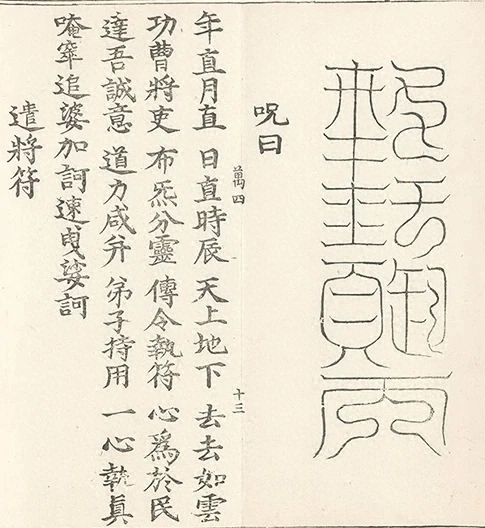 呪曰
萬四 十三
年直月直 日直時辰 天上地下 去去如雲
功曹將吏 布炁分靈 傳令執符 心爲於民
達吾誠意 道力咸弁 弟子持用 一心執眞
唵窣追婆加訶速曳婆訶
遣將符